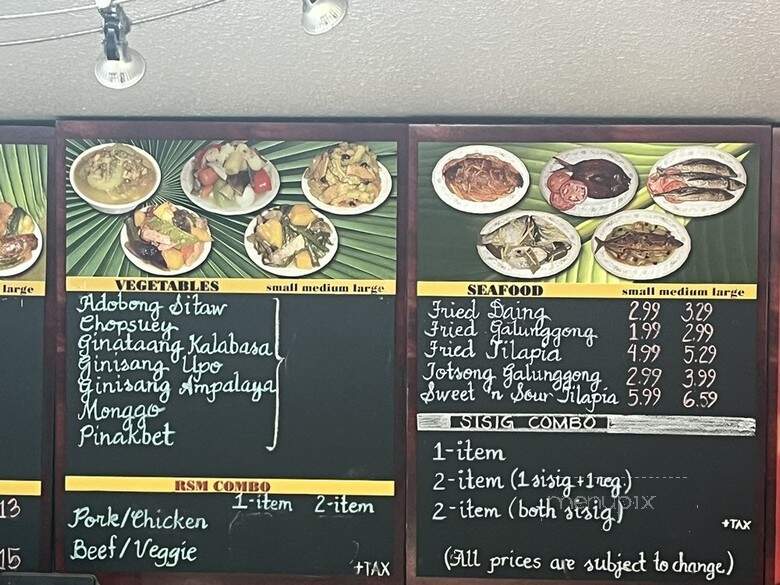 large
13
15
VEGETABLES small medium large
Adobong Sitaw
Chopsuey
Ginataang Kalabasa
Ginisang Upo
Ginisang Ampalaya
Monggo
Pinakbet
RSM COMBO
1-item 2-item
Pork/Chicken
Beef/Veggie
+TAX
SEAFOOD small medium large
Fried Daing 2.99 3.29
Fried Galunggong 1.99 2.99
Fried Tilapia 4.99 5.29
Totsong Galunggong 2.99 3.99
Sweet 'n Sour Tilapia 5.99 6.59
SISIG COMBO
1-item
2-item (1 sisig + 1 reg.)
2-item (both sisig)
+TAX
(All prices are subject to change)
menupix